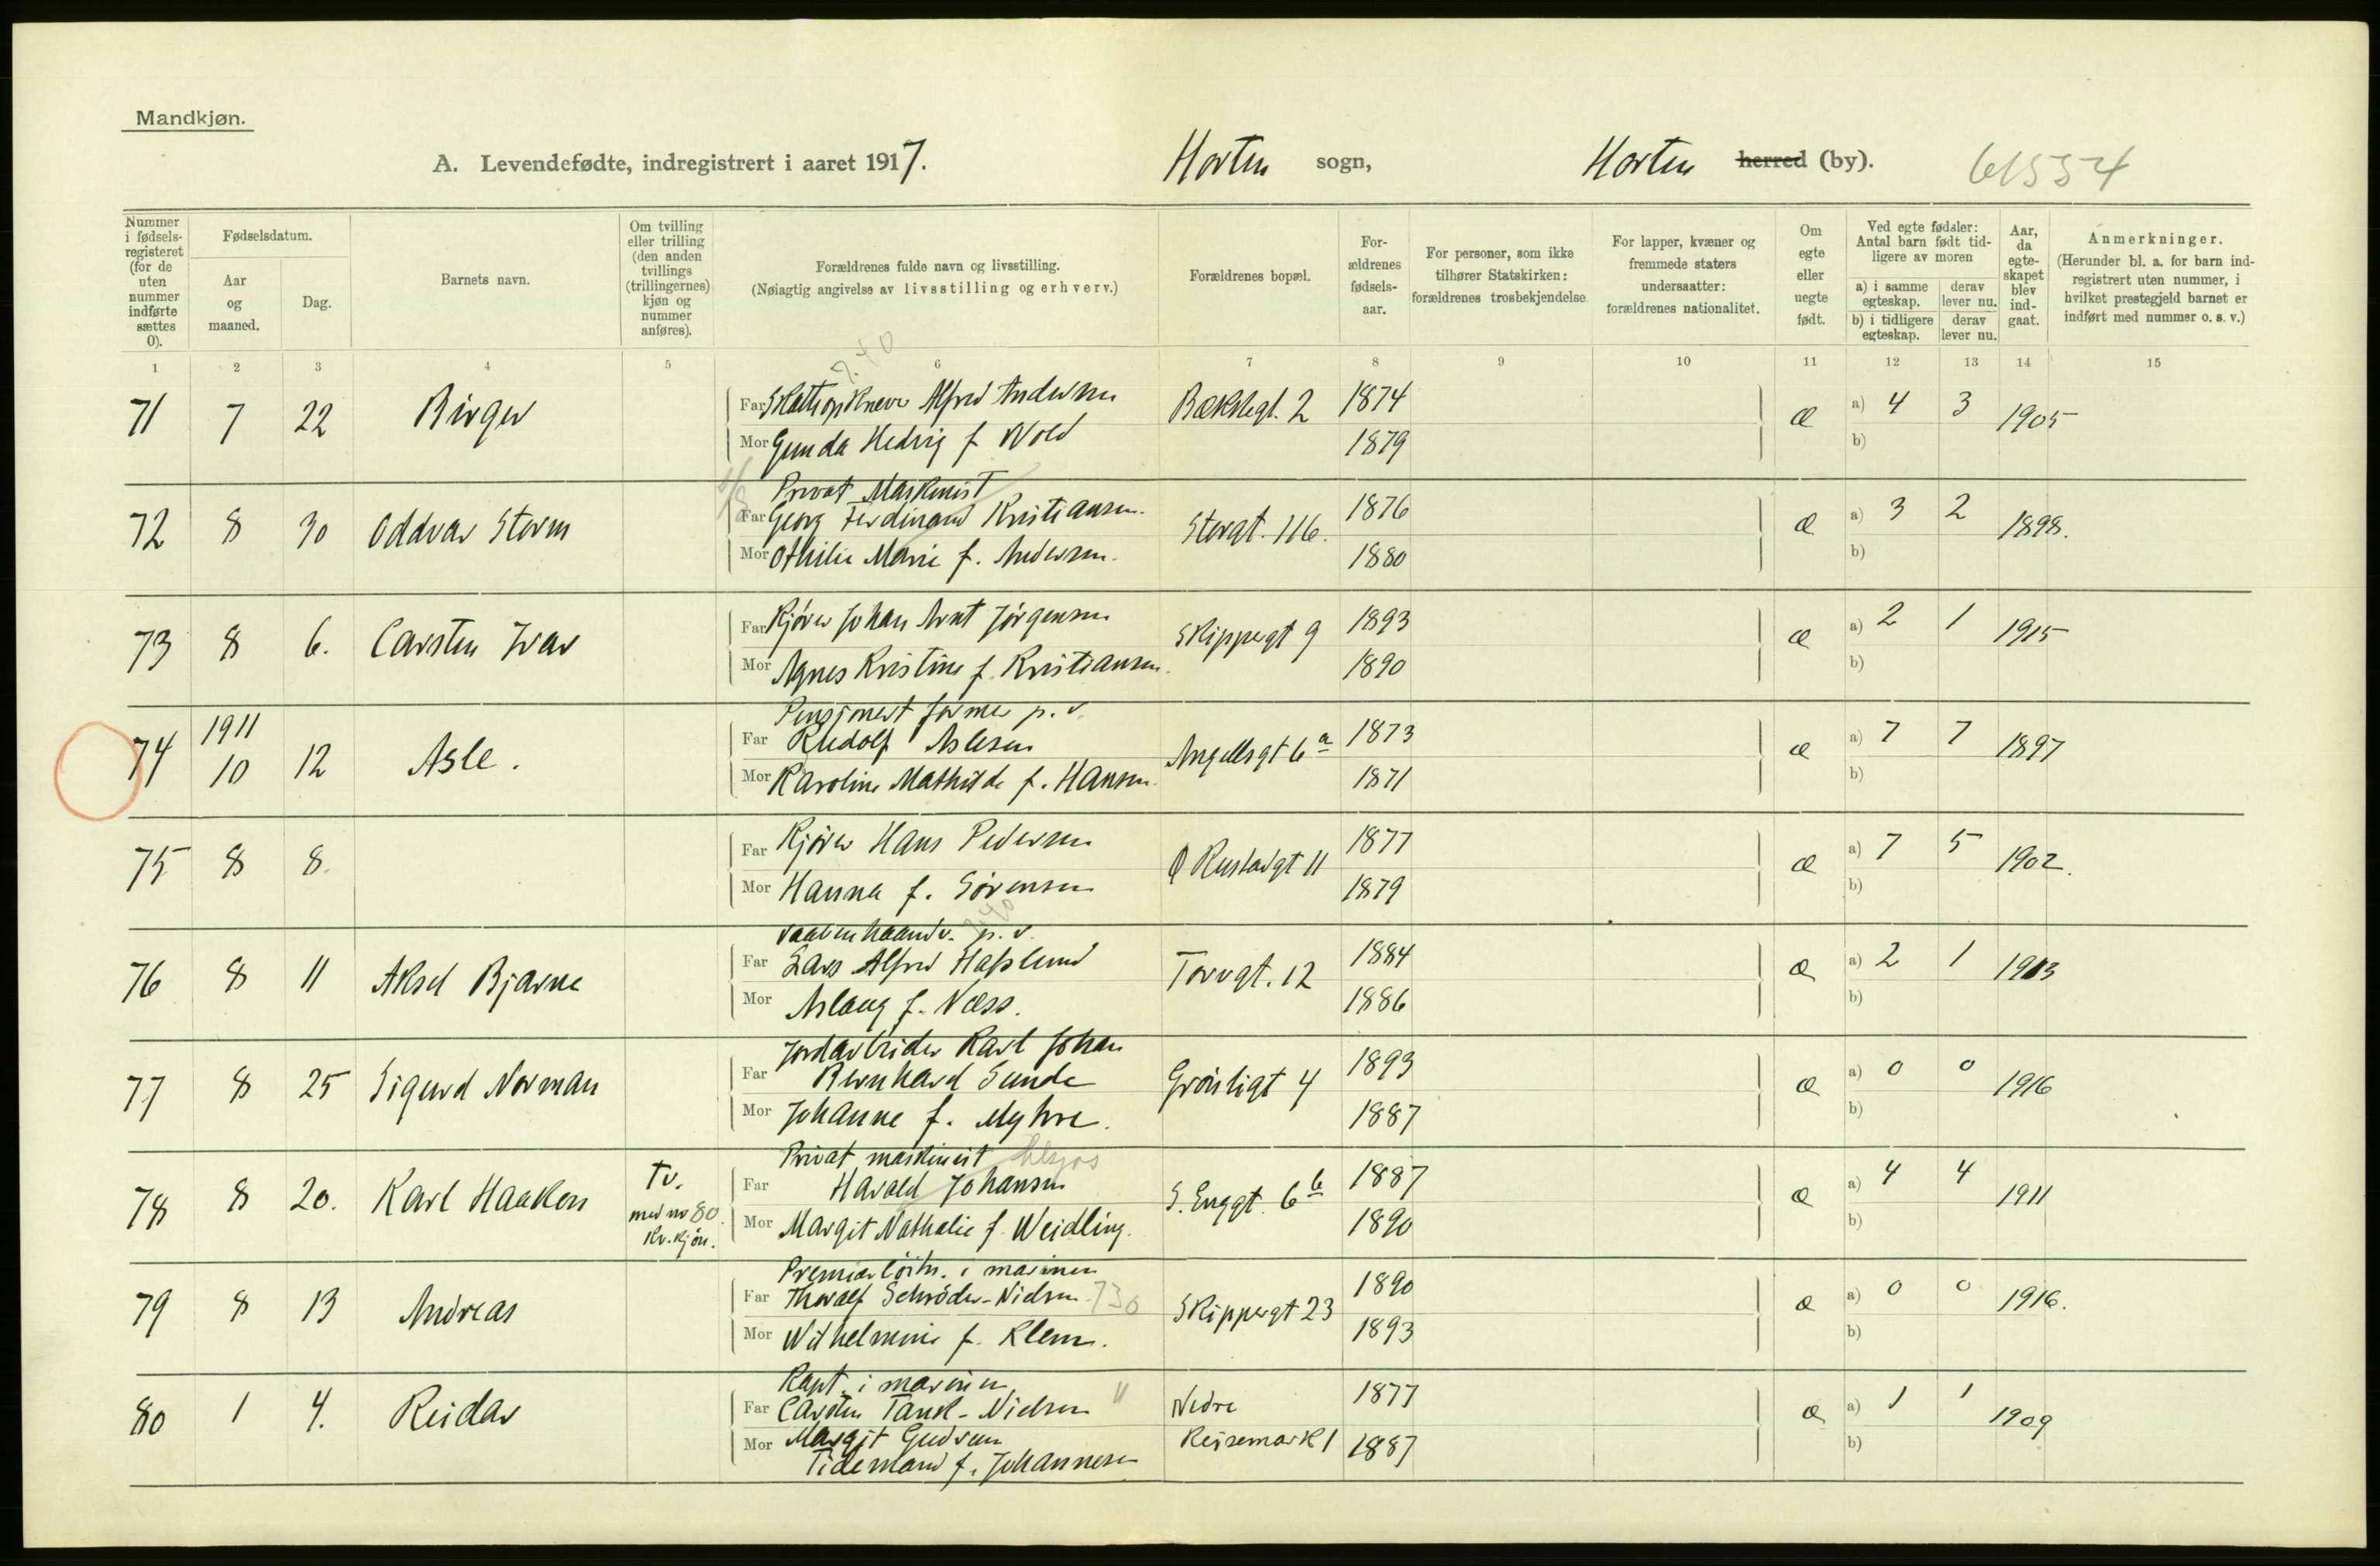 Mandkjøn.
A. Levendefødte, indregistrert i aaret 1917. Horten sogn, Horten herred (by). 61554
Nummer i fødsels-registeret (for de uten nummer indførte sættes 0).
Fødselsdatum.
Aar og maaned.
Dag.
Barnets navn.
Om tvilling eller trilling (den anden tvillings (trillingernes) kjøn og nummer anføres).
Forældrenes fulde navn og livsstilling.
(Nøiagtig angivelse av livsstilling og erhverv.)
Forældrenes bopæl.
For-ældrenes fødsels-aar.
For personer, som ikke tilhører Statskirken: forældrenes trosbekjendelse
For lapper, kvæner og fremmede staters undersaatter: forældrenes nationalitet.
Om egte eller uegte født.
Ved egte fødsler: Antal barn født tid-ligere av moren
a) i samme egteskap. derav lever nu.
b) i tidligere egteskap. derav lever nu.
Aar, da egte-skapet blev ind-gaat.
Anmerkninger.
(Herunder bl. a. for barn ind-registrert uten nummer, i hvilket prestegjeld barnet er indført med nummer o. s. v.)
1 2 3 4 5 6 7 8 9 10 11 12 13 14 15
71 7 22 Birger Far Alfred Andersen 2 1874 æ a) 4 3 1905
Mor Gunda Hedvig f. Wold 1879 b)
Privat Maskinist
72 8 30 Oddvar Storm Far Georg Ferdinand Kristiansen. Storgt. 116. 1876 æ a) 3 2 1898.
Mor Othilie Marie f. Andersen. 1880 b)
73 8 6. Carsten Ivar Far Kjører Johan Arnt Jørgensen Skippergt 9 1893 æ a) 2 1 1915
Mor Agnes Kristine f. Kristiansen. 1890 b)
Pensjonert former p. v.
74 1911 10 12 Asle. Far Rudolf Aslesen Angellsgt 6a 1873 æ a) 7 7 1897
Mor Karoline Mathilde f. Hansen. 1871 b)
75 8 8. Far Kjører Hans Pedersen O Rustadgt 11 1877 æ a) 7 5 1902.
Mor Hanna f. Sørensen 1879 b)
Vaabenhaandv. p. v.
76 8 11 Aksel Bjarne Far Lars Alfred Hafslund Torvgt. 12 1884 æ a) 2 1 1913
Mor Aslaug f. Næss. 1886 b)
Jordarbeider Karl Johan
77 8 25 Sigurd Norman Far Bernhard Sunde Grønligt 4 1893 æ a) 0 0 1916
Mor Johanne f. Myhre. 1887 b)
Privat maskinist
78 8 20. Karl Haakon Tv. med no 80. Kv. kjøn. Far Harald Johansen S. Enggt. 6b 1887 æ a) 4 4 1911
Mor Margit Nathalie f. Weidling. 1890 b)
Premierløitn. i marinen
79 8 13 Andreas Far Thoralf Schrøder-Nielsen 730 Skippergt 23 1890 æ a) 0 0 1916.
Mor Wilhelmine f. Klem. 1893 b)
Kapt. i marinen
80 1 4. Reidar Far Carsten Tank-Nielsen " Nedre 1877 æ a) 1 1 1909
Mor Margit Gudrun Keisemark 1 1887 b)
Tidemand f. Johannesen